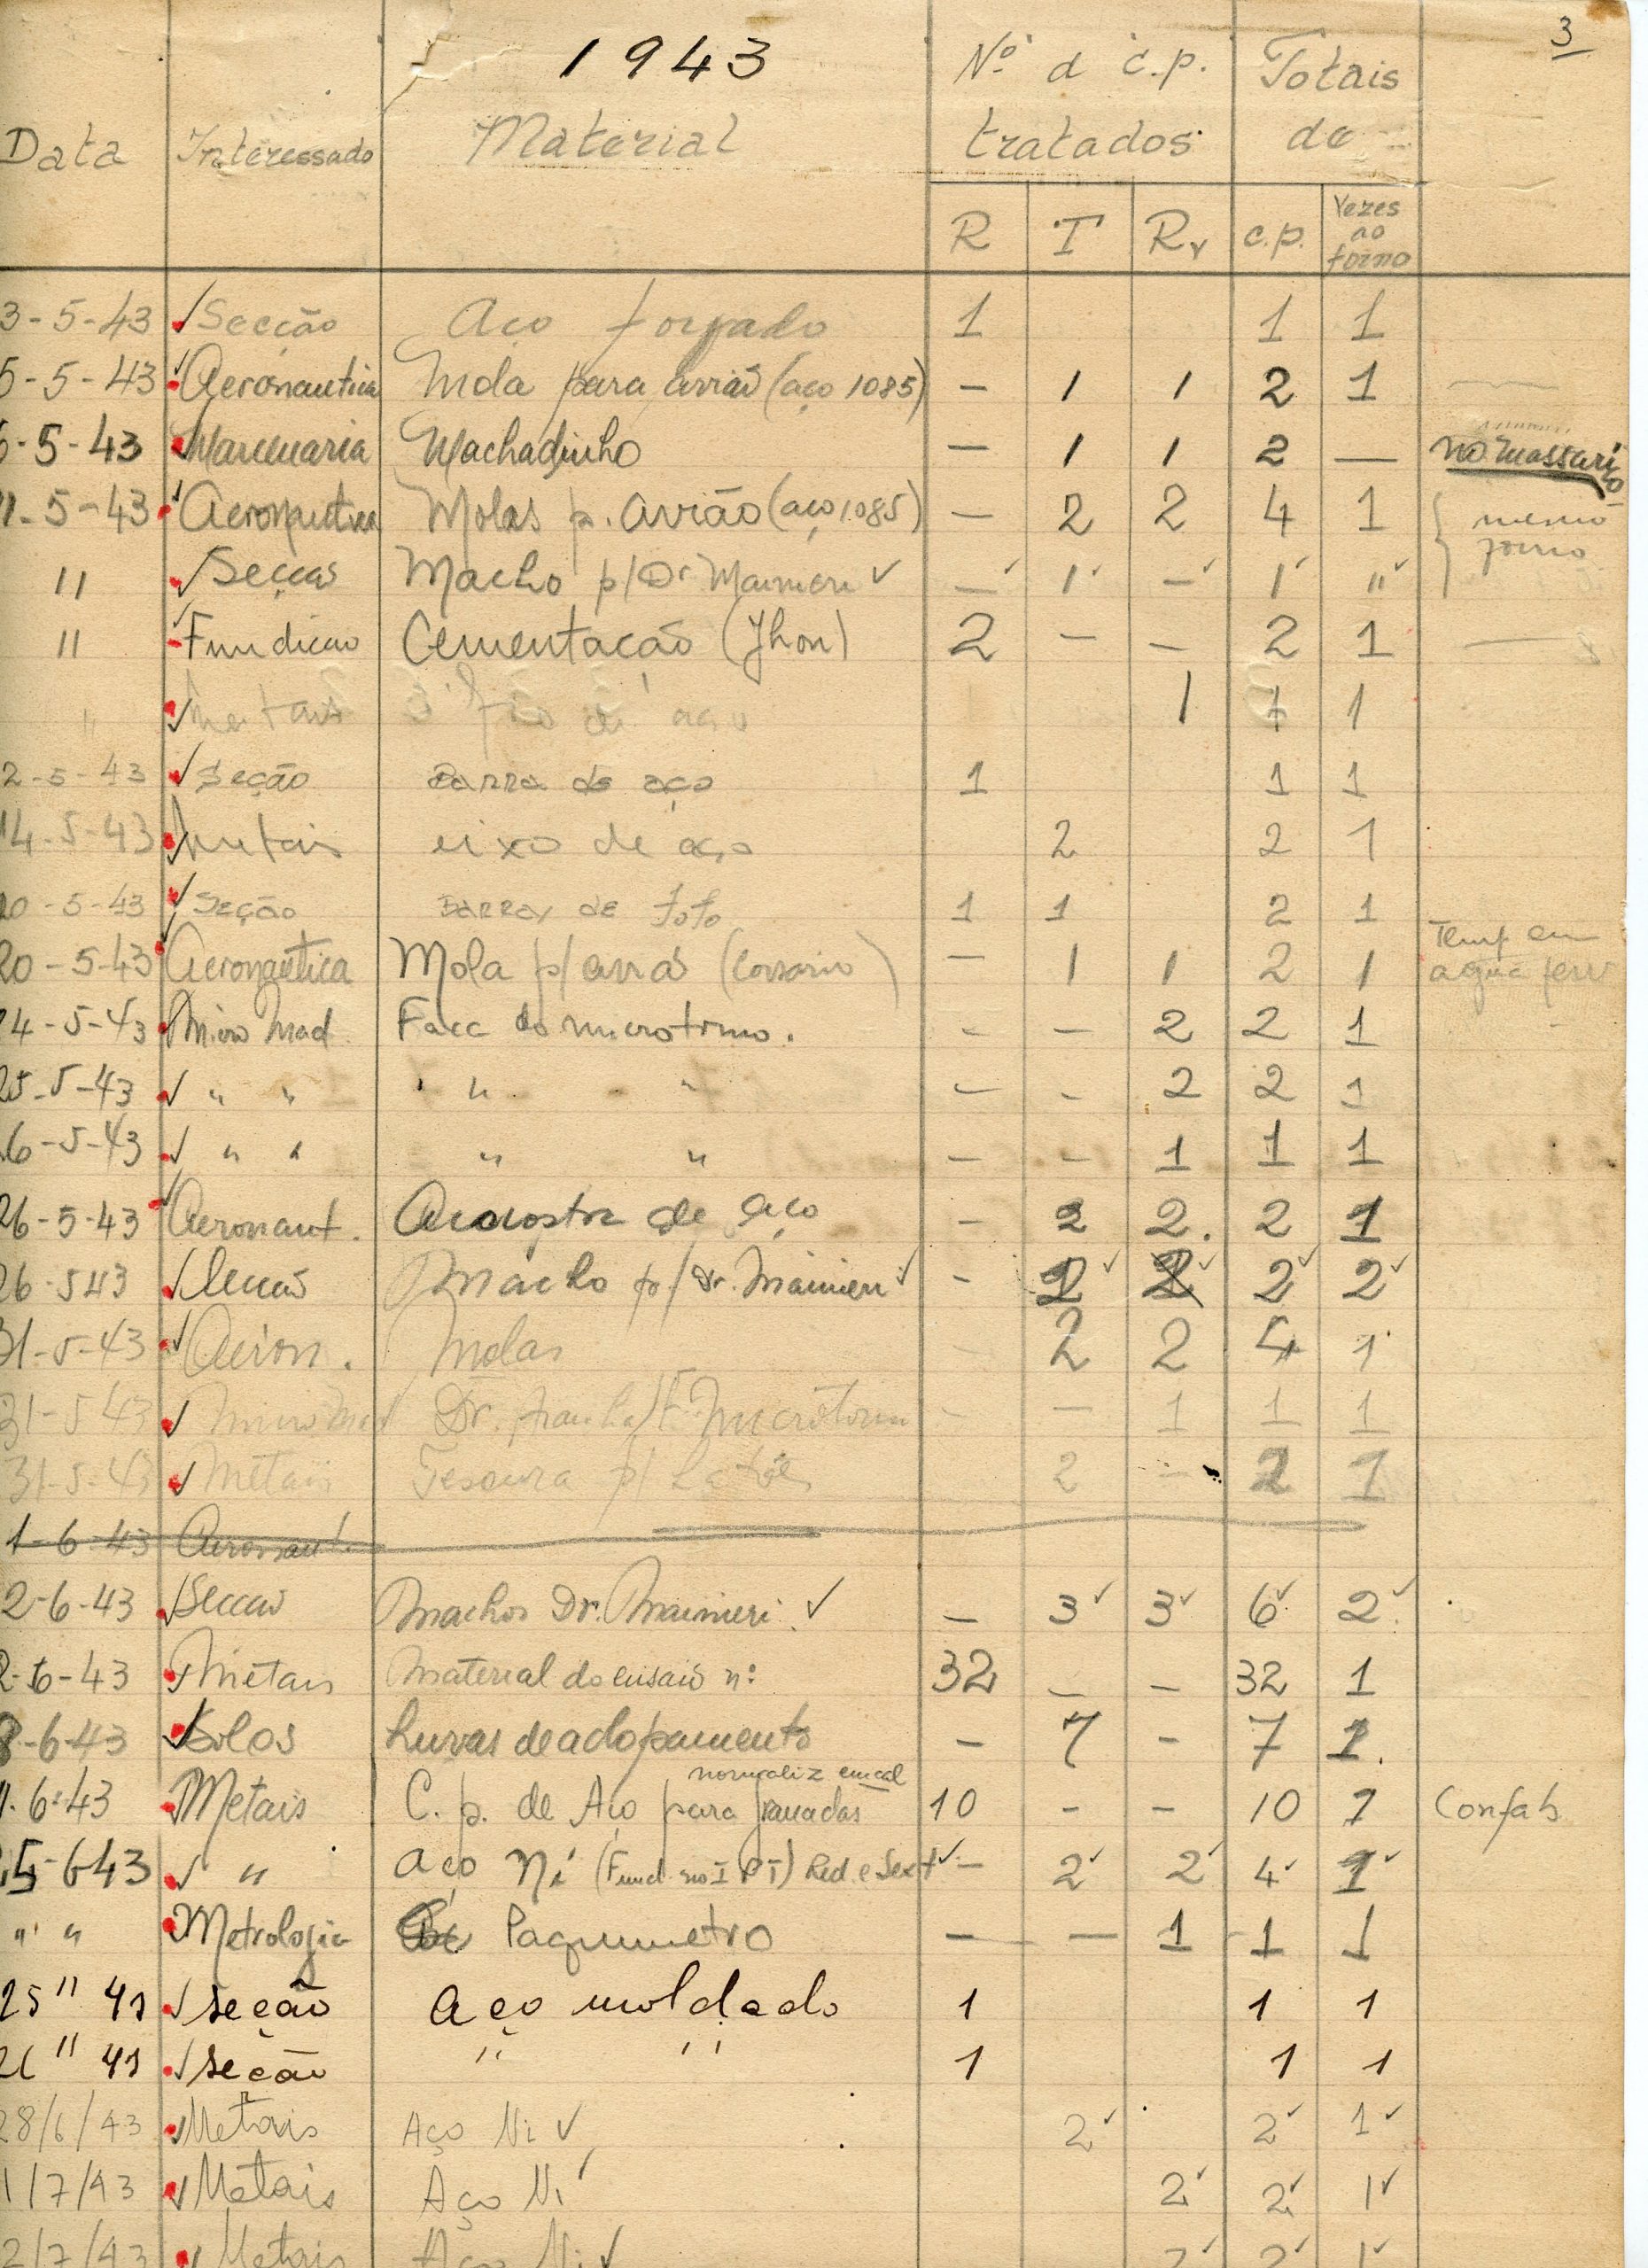 3
1943
Nº d c.p. Totais
Data Interessado Material tratados de
R T Rv c.p. Vezes ao forno
3-5-43 Secção Aço forjado 1 1 1
5-5-43 Aeronautica Mola para avião (aço 1085) — 1 1 2 1
-5-43 Machadinho — 1 1 2 — no massarico
11-5-43 Aeronautica Molas p. avião (aço 1085) — 2 2 4 1 mesmo
forno
" Secção Macho p/ Dr Mainieri ✓ — 1 — 1 "
" Fundicao Cementação (Jhon) 2 — — 2 1
" Metais fio de aço 1 1 1
2-5-43 Seção Barra de aço 1 1 1
14-5-43 Metais eixo de aço 2 2 1
20-5-43 Seção Barra de fofo 1 1 2 1
20-5-43 Aeronautica Mola p/ avião (Corsario) — 1 1 2 1 Temp em
agua ferv
24-5-43 Micro Mad Faca do microtomo. - — 2 2 1
25-5-43 " " " " — - 2 2 1
26-5-43 " " " " — - 1 1 1
26-5-43 Aeronaut. Amostra de aço - 2 2. 2 1
26-543 Secção Macho p/ Dr. Mainieri ✓ - 2 2 2 2
31-5-43 Aeron. Molas 2 2 4 1
31-5 43 Micro Mad Dr. / F. Microtomo - — 1 1 1
31-5-43 Metais Tesoura p/ Latões 2 - 2 1
1-6-43 Aeronaut.
2-6-43 Seccao Machos Dr. Mainieri. ✓ — 3 3 6 2
2-6-43 Metais Material do ensaio nº 32 — — 32 1
8-6-43 Solos Luvas de aclopamento — 7 - 7 1.
normaliz em cal
11.6.43 Metais C. p. de Aço para granadas 10 - - 10 1 Confab
15-643 " Aço Ni (Fund. no I P T) Red. e Sext ✓ — 2 2 4 1
" " Metrologia Paquimetro — — 1 1 1
25 " 43 Seção Aço moldado 1 1 1
26 " 43 Seção " " 1 1 1
28/6/43 Metais Aço Ni ✓ 2 2 1
1/7/43 Metais Aço Ni ✓ 2 2 1
2/7/43 Metais Aço Ni ✓ 2 2 1